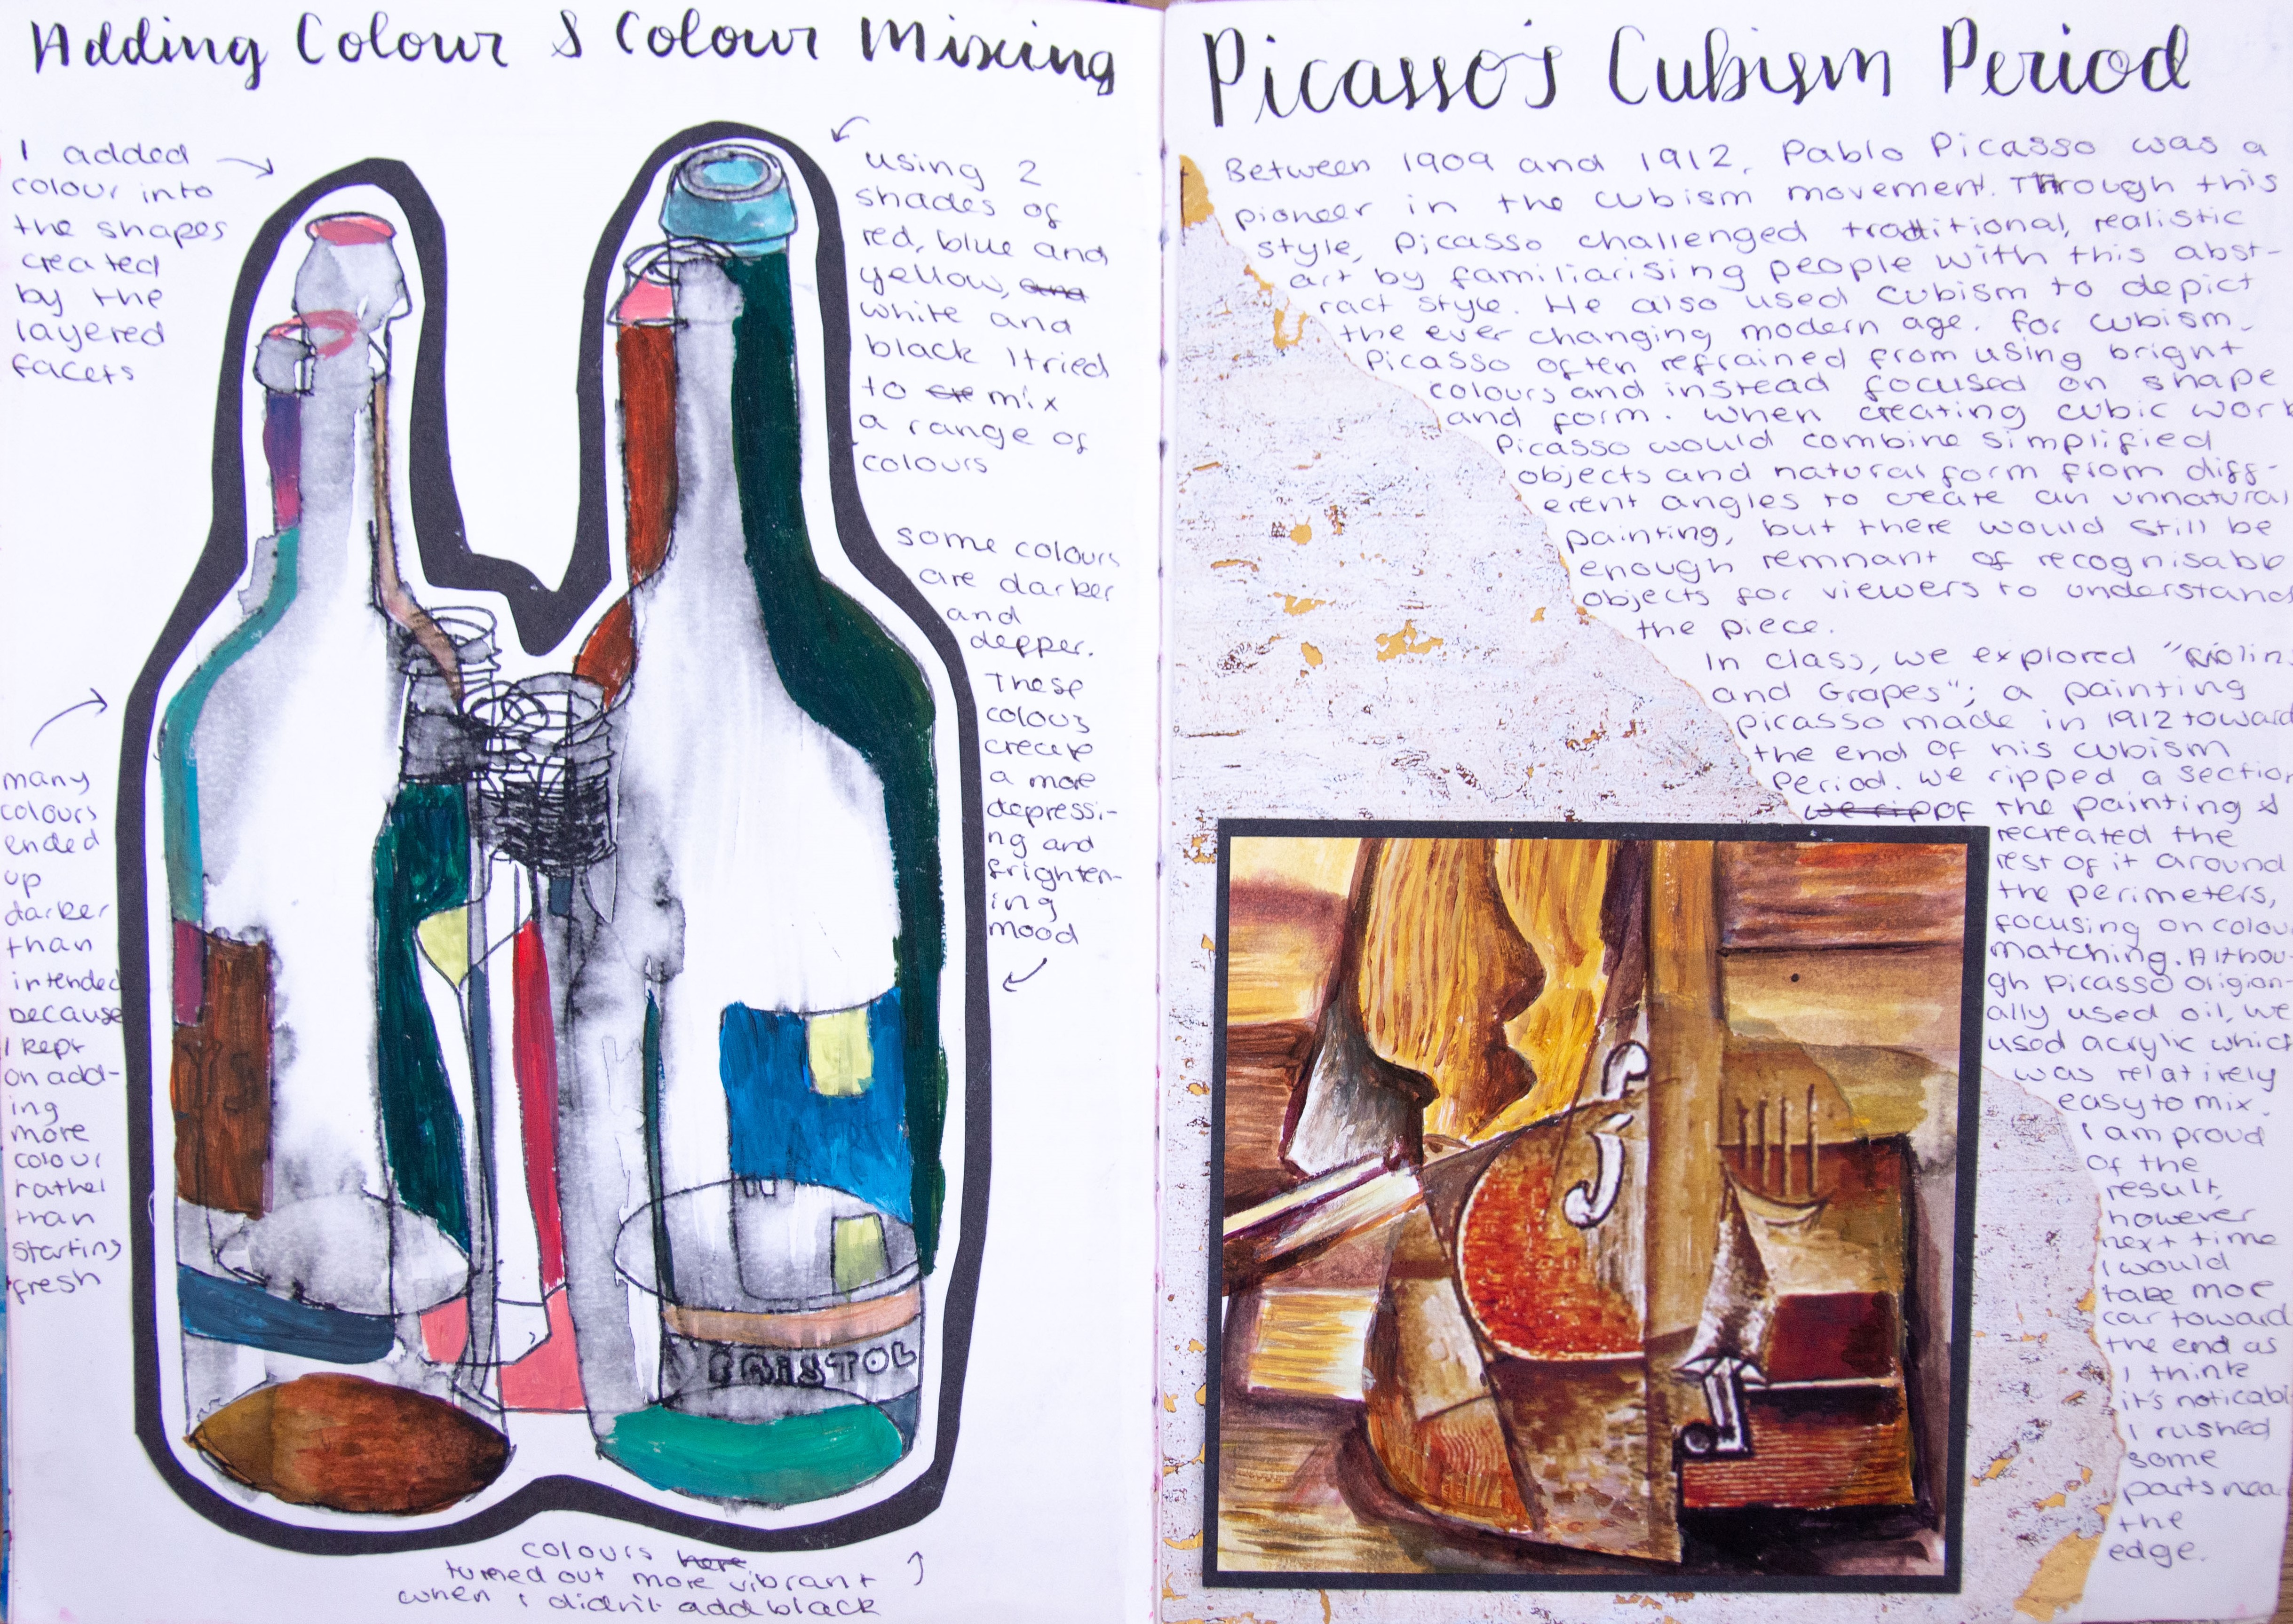 Adding Colour & Colour Mixing
I added
colour into
the shapes
created
by the
layered
facets
using 2
shades of
red, blue and
yellow, and
white and
black I tried
to mix
a range of
colours
some colours
are darker
and
depper.
These
colous
create
a more
depressi-
ng and
frighten-
ing
mood
many
colours
ended
up
darker
than
intended
because
I kept
on add-
ing
more
colour
rather
than
starting
fresh
BRISTOL
colours here
turned out more vibrant
when i didn't add black
Picasso's Cubism Period
Between 1909 and 1912, Pablo Picasso was a
pioneer in the cubism movement. Through this
style, Picasso challenged traditional, realistic
art by familiarising people with this abst-
ract style. He also used Cubism to depict
the ever changing modern age. For cubism,
Picasso often refrained from using bright
colours and instead focused on shape
and form. When creating cubic work
Picasso would combine simplified
objects and natural form from diff-
erent angles to create an unnatural
painting, but there would still be
enough remnant of recognisable
objects for viewers to understand
the piece.
In class, we explored "Violin
and Grapes"; a painting
Picasso made in 1912 toward
the end of his cubism
Period. We ripped a section
we rip of the painting &
recreated the
rest of it around
the perimeters,
focusing on colour
matching. Althou-
gh Picasso origion-
ally used oil, we
used acrylic which
was relatively
easy to mix.
I am proud
of the
result,
however
next time
I would
take more
car toward
the end as
I think
it's noticabl
I rushed
some
parts near
the
edge.